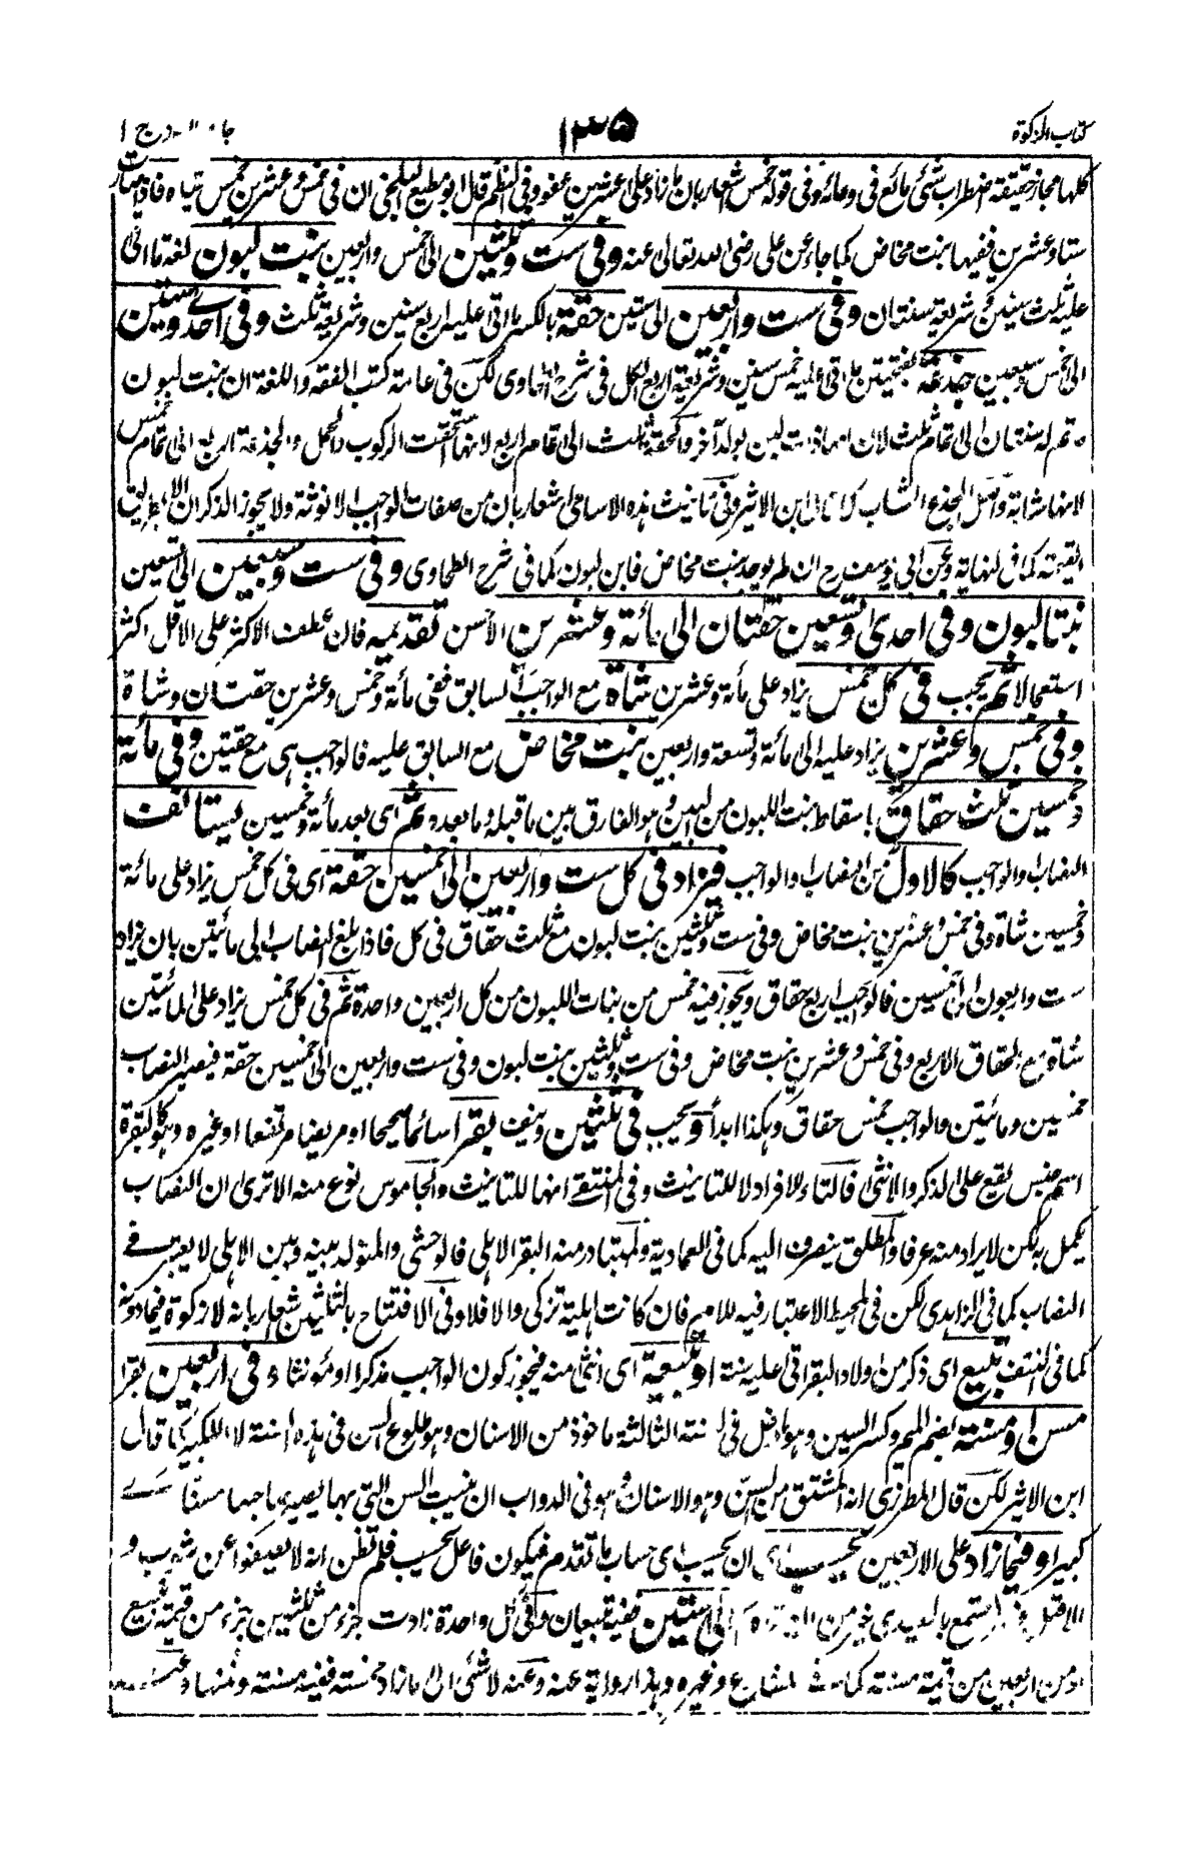 كتاب الزكوة
١٣٥
ج ١
كلها مجاز حقيقته اضطراب شئ مائع فى وعائه وفى قوله خمس اشعار بان ما زاد على عشرين عفو وفى النظم قال ابو مطيع البلخى ان فى خمس وعشرين خمس شياه فاذا صارت
ستا وعشرين ففيها بنت مخاض كما جاء عن على رضى الله تعالى عنه وفى ست وثلثين الى خمس واربعين بنت لبون لغة ما اتى
عليه ثلث سنين وشريعة سنتان وفى ست واربعين الى ستين حقة بالكسر ما اتى عليه اربع سنين وشريعة ثلث وفى احدى وستين
الى خمس وسبعين جذعة بفتحتين ما اتى عليه خمس سنين وشريعة اربع الكل فى شرح الطحاوى لكن فى عامة كتب الفقه واللغة ان بنت لبون
ما تم له سنتان الى تمام ثلث لان امها ذات لبن بولد آخر والحقة ثلث الى تمام اربع لانها استحقت الركوب والحمل والجذعة اربع الى تمام خمس
لانها شابة واصل الجذع الشاب كما قال ابن الاثير وفى تانيث هذه الاسامى اشعار بان من صفات الواجب الانوثة ولا يجوز الذكران الا بطريق
القيمة كما فى النهاية وعن ابى يوسف رح ان لم يوجد بنت مخاض فابن لبون كما فى شرح الطحاوى وفى ست وسبعين الى تسعين
بنتا لبون وفى احدى وتسعين حقتان الى مائة وعشرين الاحسن تقديمه فان عطف الاكثر على الاقل اكثر
استعمالا ثم يجب فى كل خمس يزاد على مأة وعشرين شاة مع الواجب السابق ففى مأة وخمس وعشرين حقتان وشاة
وفى خمس وعشرين يزاد عليه الى مائة وتسعة واربعين بنت مخاض مع السابق عليه فالواجب هى مع حقتين وفى مائة
وخمسين ثلث حقاق باسقاط بنت اللبون من البين وهو الفارق بين ما قبله وما بعده ثم اى بعد مأة وخمسين يستانف
النصاب والواجب كالاول من النصاب والواجب فيزاد فى كل ست واربعين الى خمسين حقة اى فى كل خمس يزاد على مائة
وخمسين شاة وفى خمس وعشرين بنت مخاض وفى ست وثلثين بنت لبون مع ثلث حقاق فى كل فاذا بلغ النصاب الى مائتين بان يزاد
ست واربعون الى خمسين فالواجب اربع حقاق ويجوز فيه خمس من بنات اللبون من كل اربعين واحدة ثم فى كل خمس يزاد على المائتين
شاة مع الحقاق الاربع وفى خمس وعشرين بنت مخاض وفى ست وثلثين بنت لبون وفى ست واربعين الى خمسين حقة فيصير النصاب
خمسين ومائتين والواجب خمس حقاق وهكذا ابدا ويجب فى ثلثين ونيف بقرا سائما صحيحا او مريضا مرتفعا او غيره وهو كالبقرة
اسم جنس يقع على الذكر والانثى فالتاء للافراد لا للتانيث وفى المنتقى انها للتانيث والجاموس نوع منه الا ترى ان النصاب
يكمل به لكن لا يراد منه عرفا والمطلق ينصرف اليه كما فى العمادية والمتبادر منه البقر الاهلى فالوحشى والمتولد بينه وبين الاهلى لا يعتبر فى
النصاب كما فى الزاهدى لكن فى المحيط الاعتبار فيه للام فان كانت اهلية تزكى والا فلا وفى الافتتاح بالثلثين اشعار بانه لا زكوة فيما دونه
كما فى النتف تبيع اى ذكر من اولاد البقر اتى عليه سنة او تبيعة اى انثى منه فيجوز كون الواجب مذكرا او مؤنثا وفى اربعين بقرا
مسن او مسنة بضم الميم وكسر السين وهو ما دخل فى السنة الثالثة ماخوذ من الاسنان وهو طلوع السن فى هذه السنة لا الكبر كما قال
ابن الاثير لكن قال المطرزى انه المشتق من السن وهو الاسنان وهو فى الدواب ان ينبت السن التى بها يصير صاحبها مسنا اى
كبيرا وفيما زاد على الاربعين يحسب اى ان يحسب اى حساب ما تقدم فيكون فاعل يحسب فلم تظن انه لا يضيفوا عن شوب و
الى ستين ففيه تبيعان وفى كل واحدة زادت جزء من ثلثين جزء من قيمة تبيع
او من اربعين من قيمة مسنة كما فى وغيره وهذا رواية عنه وعنه لا شئ الى ما زاد خمسة ففيه مسنة وثمنها